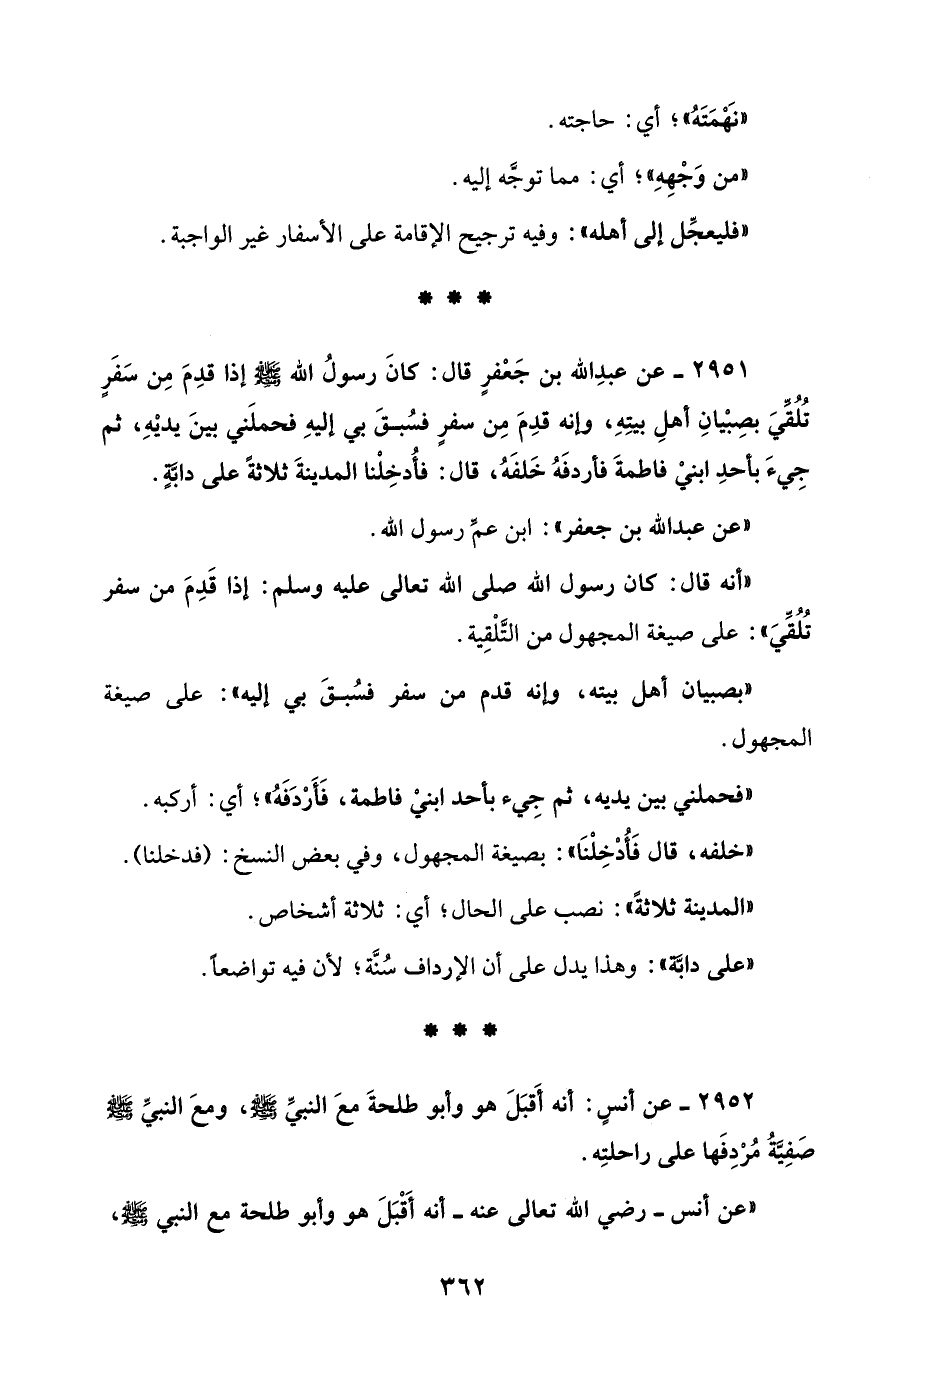 «نَهْمَتَهُ»؛ أي: حاجته.
«من وَجْهِهِ»؛ أي: مما توجَّه إليه.
«فليعجِّل إلى أهله»: وفيه ترجيح الإقامة على الأسفار غير الواجبة.
* * *
٢٩٥١ ـ عن عبدِالله بن جَعْفرٍ قال: كانَ رسولُ الله ﷺ إذا قدِمَ مِن سَفَرٍ
تُلُقِّيَ بصِبْيانِ أهلِ بيتِهِ، وإنه قدِمَ مِن سفرٍ فسُبـقَ بي إليهِ فحملَني بينَ يديْهِ، ثم
جِيءَ بأحدِ ابنيْ فاطمةَ فأردفَهُ خَلفَهُ، قال: فأُدخِلْنا المدينةَ ثلاثةً على دابَّةٍ.
«عن عبدالله بن جعفر»: ابن عمِّ رسول الله.
«أنه قال: كان رسول الله صلى الله تعالى عليه وسلم: إذا قَدِمَ من سفر
تُلُقِّيَ»: على صيغة المجهول من التَّلْقِية.
«بصبيان أهل بيته، وإنه قدم من سفر فسُبـقَ بي إليه»: على صيغة
المجهول.
«فحملني بين يديه، ثم جِيء بأحد ابنيْ فاطمة، فَأَرْدَفَهُ»؛ أي: أركبه.
«خلفه، قال فَأُدْخِلْنَا»: بصيغة المجهول، وفي بعض النسخ: (فدخلنا).
«المدينة ثلاثةً»: نصب على الحال؛ أي: ثلاثة أشخاص.
«على دابَّة»: وهذا يدل على أن الإرداف سُنَّة؛ لأن فيه تواضعاً.
* * *
٢٩٥٢ ـ عن أنسٍ: أنه أَقبَلَ هو وأبو طلحةَ معَ النبيِّ ﷺ، ومعَ النبيِّ ﷺ
صَفِيَّةُ مُرْدِفَها على راحلتِه.
«عن أنس ـ رضي الله تعالى عنه ـ أنه أَقْبَلَ هو وأبو طلحة مع النبي ﷺ،
٣٦٢